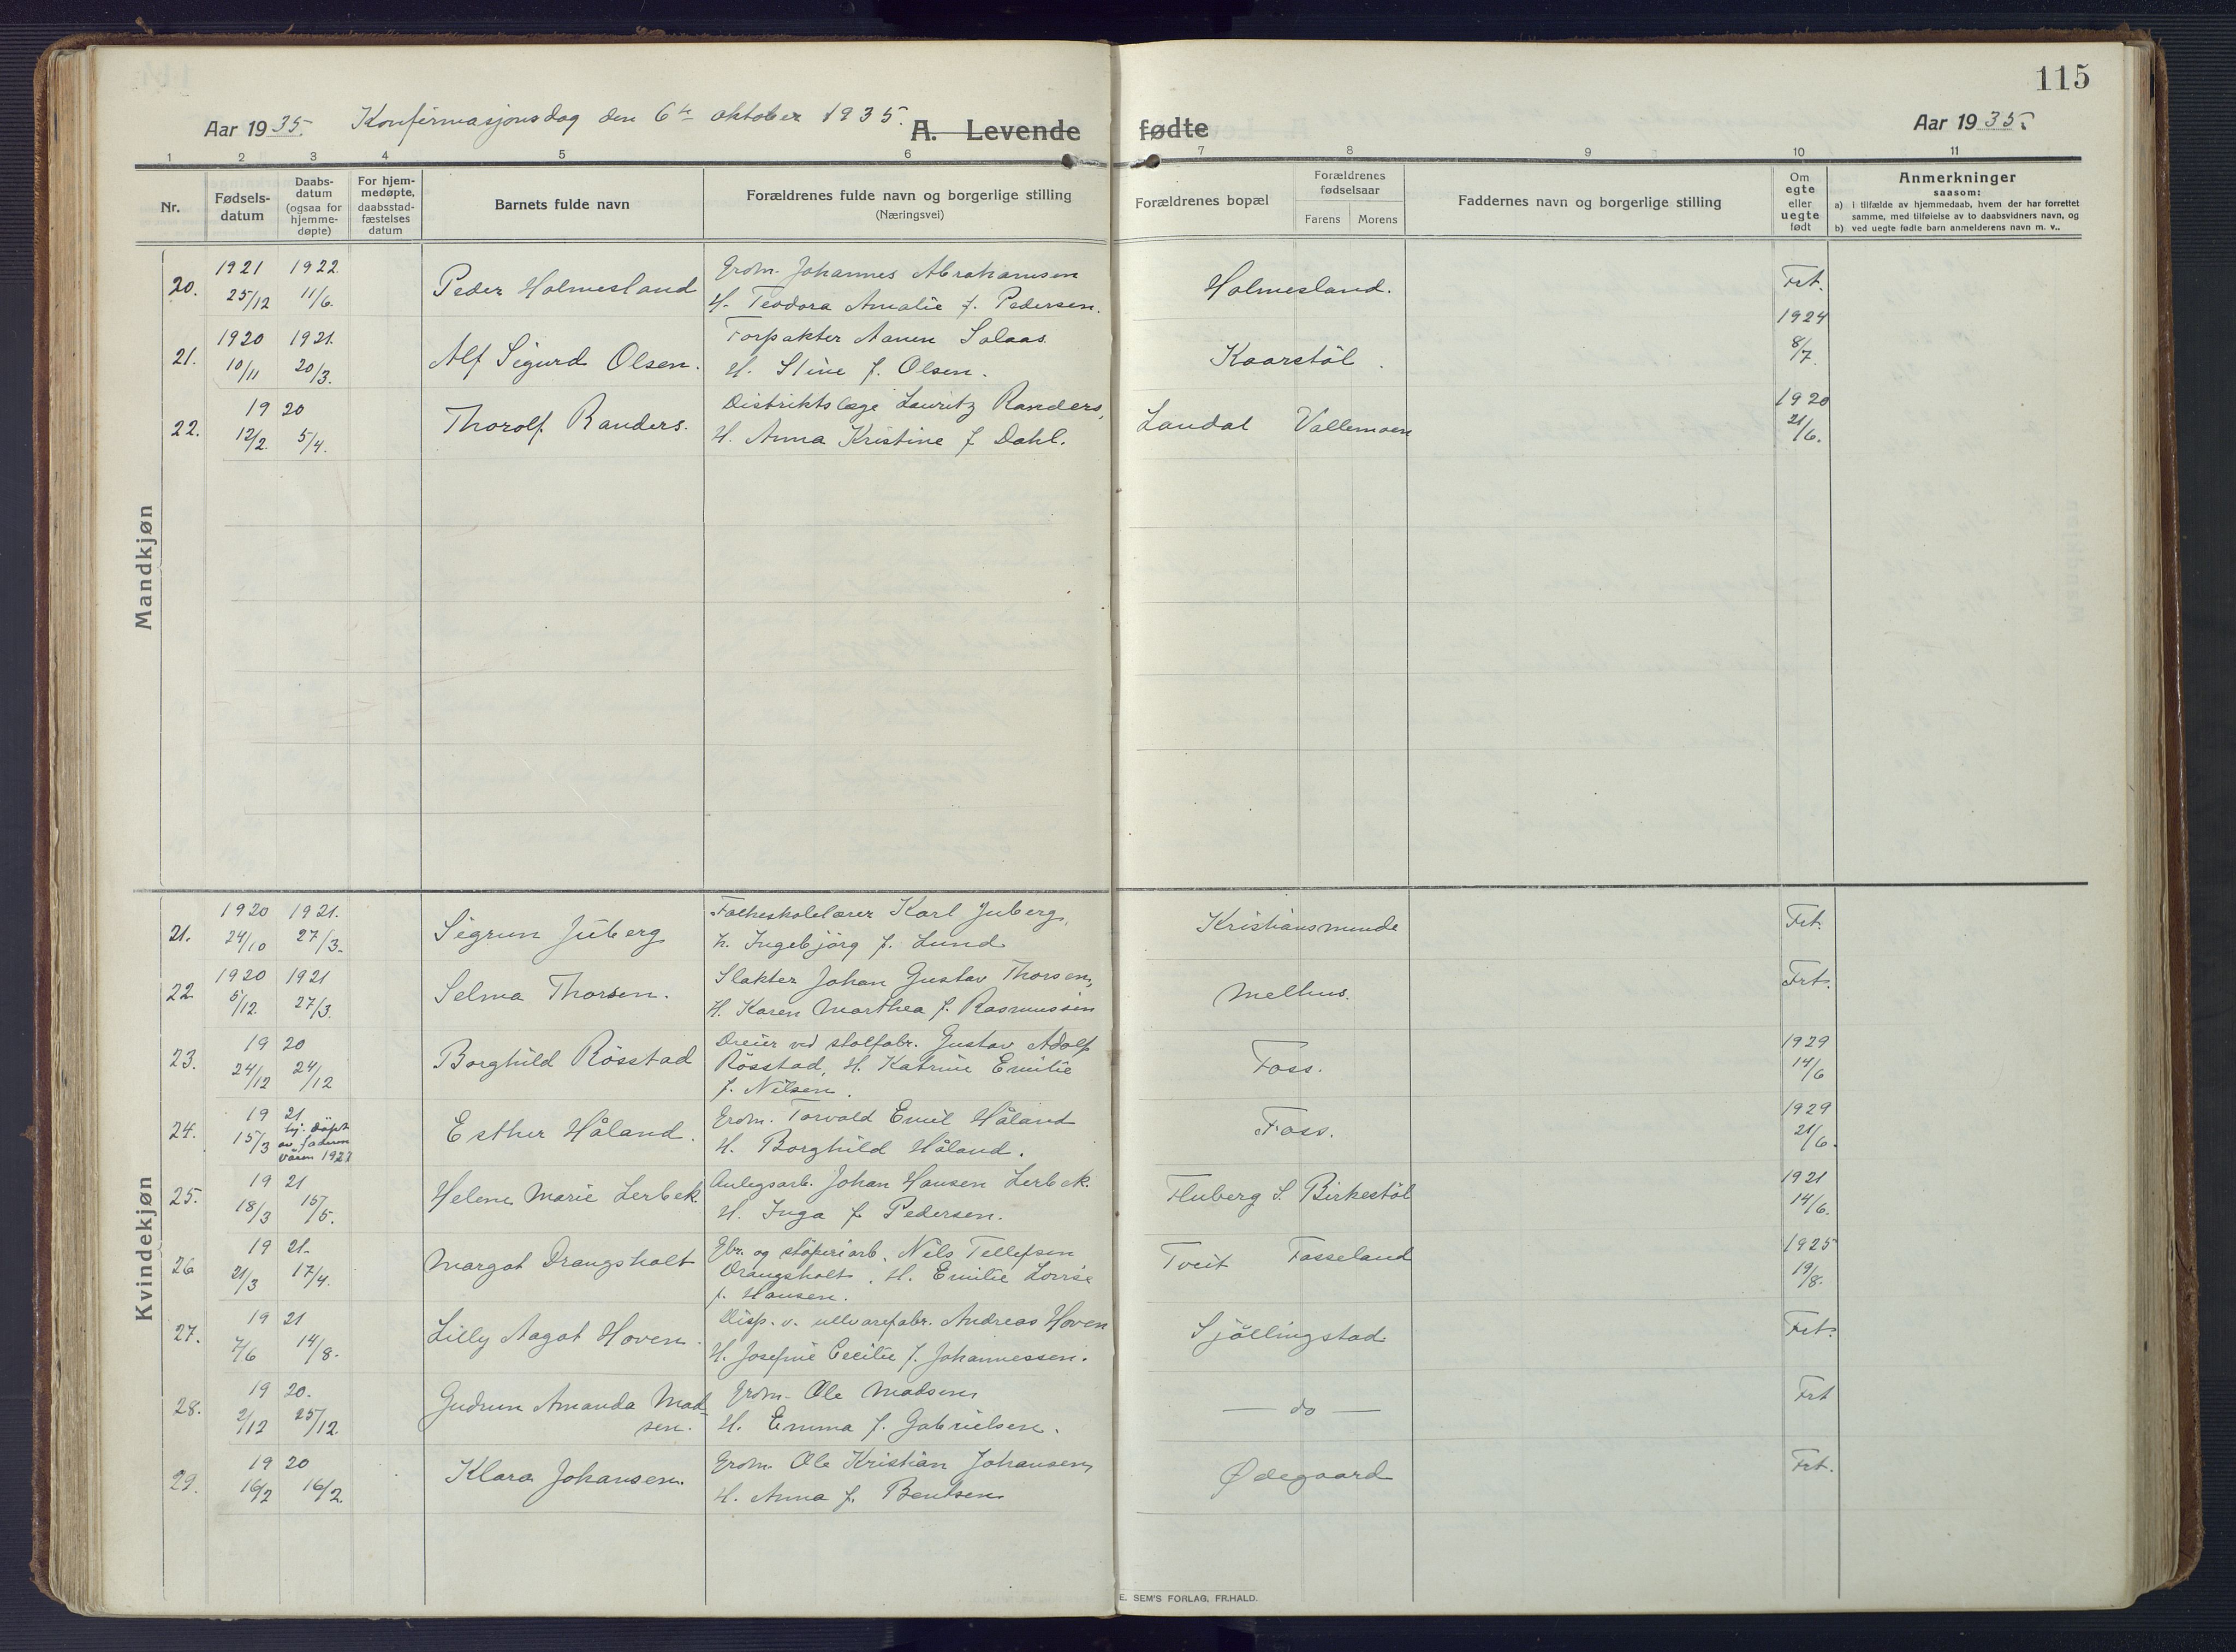 115
Aar 1935. Konfirmasjonsdag den 6te oktober 1935. A. Levende fødte Aar 1935.
1 2 3 4 5 6 7 8 9 10 11
Nr.
Fødsels-
datum
Daabs-
datum
(ogsaa for
hjemme-
døpte)
For hjem-
medøpte,
daabsstad-
fæstelses
datum
Barnets fulde navn
Forældrenes fulde navn og borgerlige stilling
(Næringsvei)
Forældrenes bopæl
Forældrenes
fødselsaar
Farens Morens
Faddernes navn og borgerlige stilling
Om
egte
eller
uegte
født
Anmerkninger
saasom:
a) I tilfælde av hjemmedaab, hvem der har forrettet
samme, med tilføielse av to daabsvidners navn, og
b) ved uegte fødte barn anmelderens navn m. v..
Mandkjøn
20. 1921 25/12 1922 11/6. Peder Holmesland
Grdm. Johannes Abrahamsen
H. Teodora Amalie f. Pedersen.
Holmesland. Frt.
21. 1920 10/11 1921. 20/3. Alf Sigurd Olsen.
Forpakter Aanen Solaas
H. Stine f. Olsen.
Kaarstöl. 1924 8/7.
22. 1920 12/2. 5/4. Thorolf Randers.
Distriktslæge Lauritz Randers,
H. Anna Kristine f Dahl.
Laudal Vallemoen 1920 21/6.
Kvindekjøn
21. 1920 24/10 1921. 27/3. Sigrun Juberg
Folkeskolelærer Karl Juberg,
h. Ingebjörg f. Lund
Kristiansminde Frt.
22 1920 5/12. 1921 27/3. Selma Thorsen.
Slakter Johan Gustav Thorsen,
H. Karen Marthea f. Rasmussen
Melhus. Frt.
23. 1920 24/12 24/12 Borghild Rösstad
Dreier ved stolfabr. Gustav Adolf
Rösstad, H. Katrine Emilie
f. Nilsen.
Foss. 1929 14/6
24. 1921 15/3 hj. döpt
av faderen
våren 1921
Esther Håland.
Grdm. Torvald Emil Håland
H. Borghild Håland.
Foss. 1929 21/6.
25. 1921 18/3 15/5. Helene Marie Lerbek.
Anlegsarb. Johan Hansen Lerbek.
H. Inga f. Pedersen.
Fluberg S. Birkestöl 1921 14/6.
26 1921. 21/3 17/4. Margot Drangsholt
Gbr. og stöperiarb. Nils Tellefsen
Drangsholt, H. Emilie Lovise
f. Hansen.
Tveit Fosseland 1925 19/8.
27. 1921 7/6 14/8. Lilly Aagot Hoven.
Disp. v. ullvarefabr. Andreas Hoven
H. Josefine Cecilie f. Johannessen.
Sjöllingstad. Frt.
28. 1920. 2/12 25/12. Gudrun Amanda Mad-
sen.
Grdm. Ole Madsen
H. Emma f. Gabrielsen.
— do — Frt
29. 1920 16/2 16/2. Klara Johansen.
Grdm. Ole Kristian Johansen,
H. Anna f. Bentsen
Ødegaard Frt.
E. SEM'S FORLAG, FR.HALD.